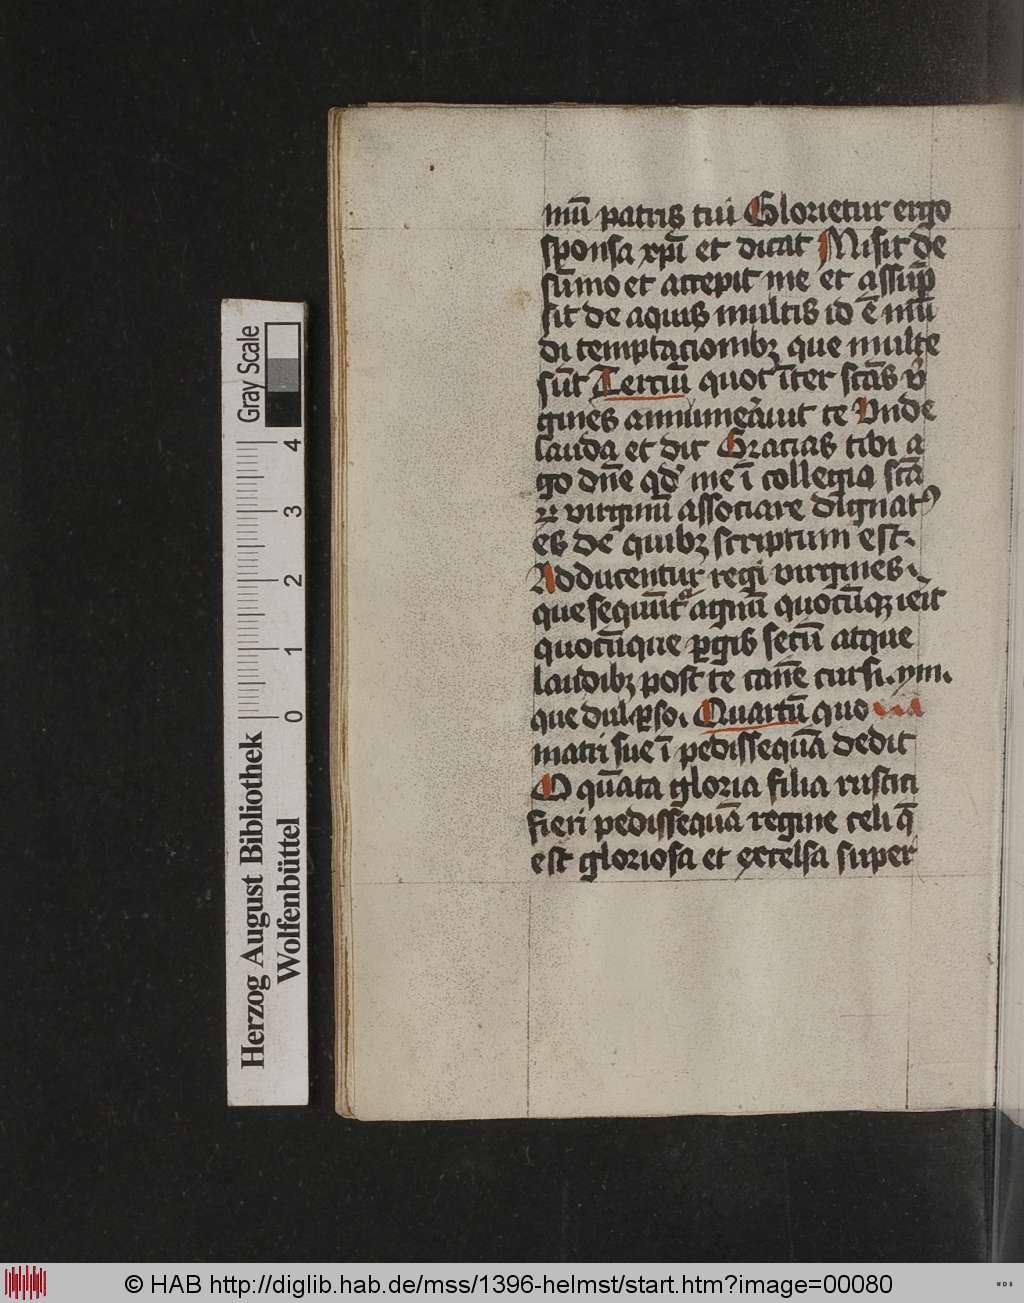 mū patris tui Glorietur ergo
sponsa xpi et dicat Misit de
sūmo et accepit me et assūp
sit de aquis multis id ē mū
di temptaciombꝫ que multe
sūt Terciū quot īter scās v̓
gines annumeāuit te Vnde
lauda et dic Gracias tibi a
go dn̄e qd̓ me ī collegio scā
ꝝ virginū associare dignatꝰ
es de quibꝫ scriptum est.
Adducentur regi virgines.
que sequūt᷑ agnū quocūqꝫ ieit
quocūque ꝑgis secū atque
laudibꝫ post te cane cursi. ym.
que dul. ꝑso. Quartū quo
matri sue ī pedissequā dedit
O quāta gloria filia rustici
fieri pedissequā regine celi q̄
est gloriosa et excelsa super
Herzog August Bibliothek
Wolfenbüttel
Gray Scale
0 1 2 3 4
© HAB http://diglib.hab.de/mss/1396-helmst/start.htm?image=00080
WDB